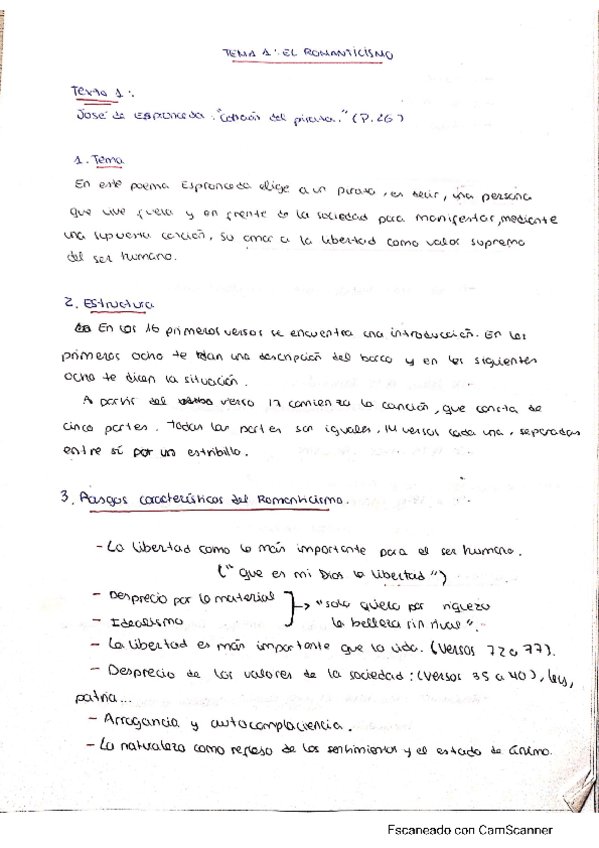 TEMA 1: EL ROMANTICISMO
Texto 1:
José de Espronceda: "Canción del pirata." (P.26)
1. Tema
En este poema Espronceda elige a un pirata, es decir, una persona
que vive fuera y en frente de la sociedad para manifestar, mediante
una supuesta canción, su amor a la libertad como valor supremo
del ser humano.
2. Estructura
En los 16 primeros versos se encuentra una introducción. En los
primeros ocho te dan una descripción del barco y en los siguientes
ocho te dicen la situación.
A partir del verso 17 comienza la canción, que consta de
cinco partes. Todas las partes son iguales, 14 versos cada una, separadas
entre sí por un estribillo.
3. Rasgos característicos del Romanticismo.
- La libertad como lo más importante para el ser humano.
("que es mi Dios la libertad")
- Desprecio por lo material → "solo quiero por riqueza
- Idealismo la belleza sin rival".
- La libertad es más importante que la vida. (Versos 72 a 77).
- Desprecio de los valores de la sociedad: (Versos 35 a 40), ley,
patria...
- Arrogancia y autocomplaciencia.
- La naturaleza como reflejo de los sentimientos y el estado de ánimo.
Escaneado con CamScanner